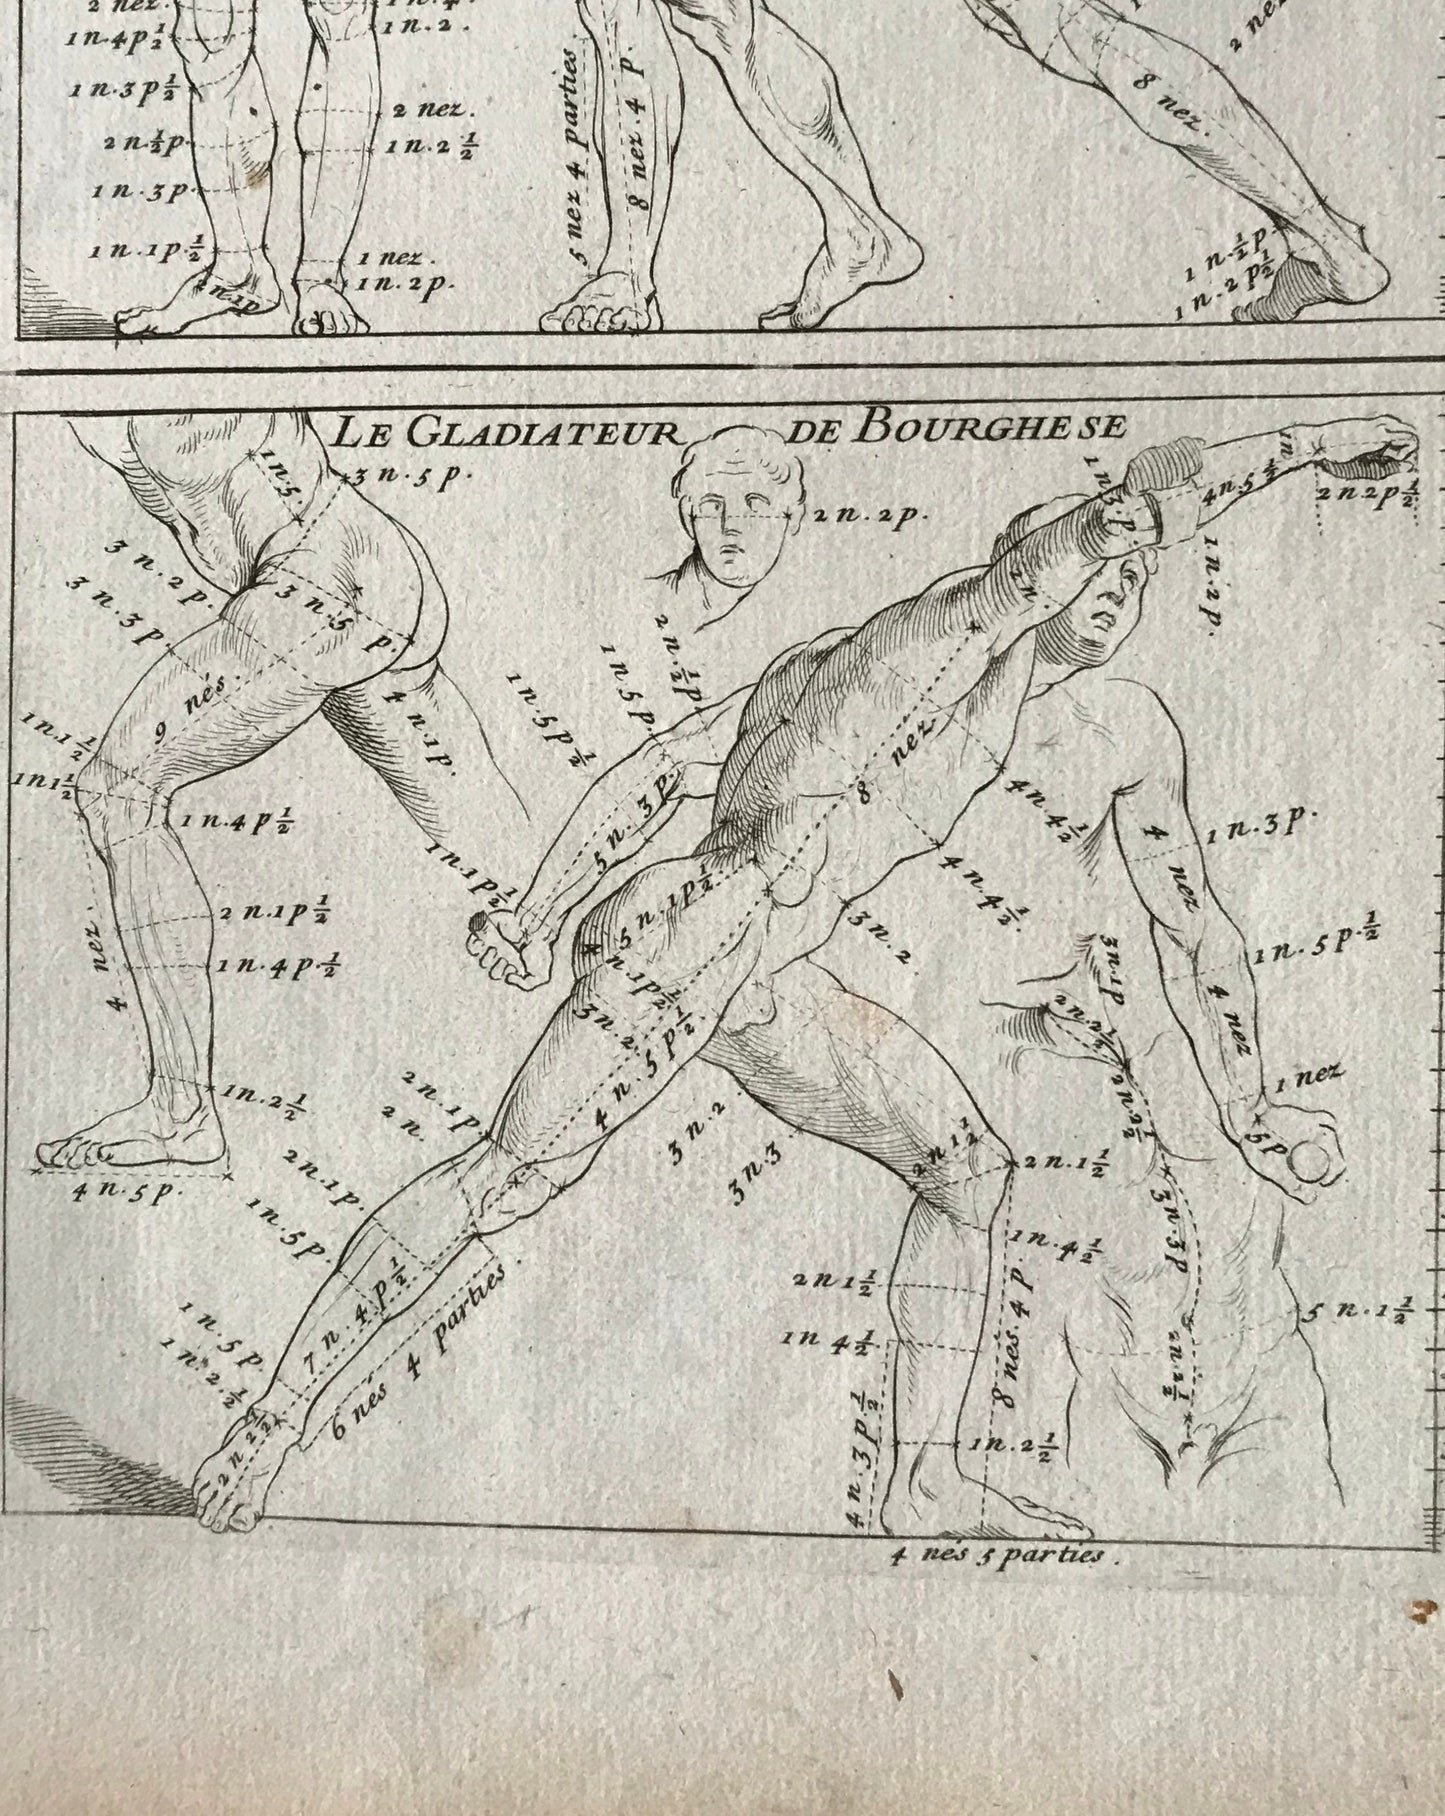 2 nez.
1 n. 4 p 1/2
1 n. 3 p 1/2
2 n 1/2 p
1 n. 3 p.
1 n. 1 p. 1/2
1 n. 2.
2 nez.
1 n. 2 1/2
1 nez.
1 n. 2 p.
5 nez 4 parties.
8 nez. 4 p.
8 nez.
1 n. 1/2 p.
1 n. 2 p 1/2
LE GLADIATEUR DE BOURGHESE
1 n. 5.
3 n. 5 p.
2 n. 2 p.
1 n 3 p.
4 n. 5 1/2
1 n
2 n 2 p 1/2
1 n. 2 p.
3 n. 2 p.
3 n. 3 p.
3 n. 5 p.
9 nés.
4 n. 1 p.
1 n. 1 1/2
1 n 1 1/2
1 n. 4 p 1/2
2 n. 1 p 1/2
1 n. 4 p. 1/2
4 nez.
1 n. 2 1/2
4 n. 5 p.
2 n. 1/2 p
1 n 5 p.
1 n. 5 p 1/2
5 n. 3 p.
1 n. 1 p 1/2
8 nez
4 n 4 1/2
4 n. 4 1/2.
3 n. 2.
5 n. 1 p 1/2.
n. 1 p 1/2
3 n. 2.
4 n. 5 p 1/2.
4 nez
1 n. 3 p.
1 n. 5 p. 1/2
4 nez
1 nez
5 p
3 n. 1 p
2 n. 2 1/2
2 n. 2 1/2
3 n. 3 p
2 n. 2 1/2
5 n. 1 1/2
2 n. 1 p.
2 n.
2 n. 1 p.
1 n. 5 p.
1 n. 5 p.
1 n. 2. 1/2
7 n. 4 p 1/2
6 nés 4 parties.
2 n 2 1/2
3 n. 2
3 n. 3
2 n 1 1/2
2 n. 1 1/2
1 n. 4 1/2
2 n 1 1/2
1 n 4 1/2
8 nes. 4 p.
4 n. 3 p 1/2
1 n. 2 1/2
4 nés 5 parties.